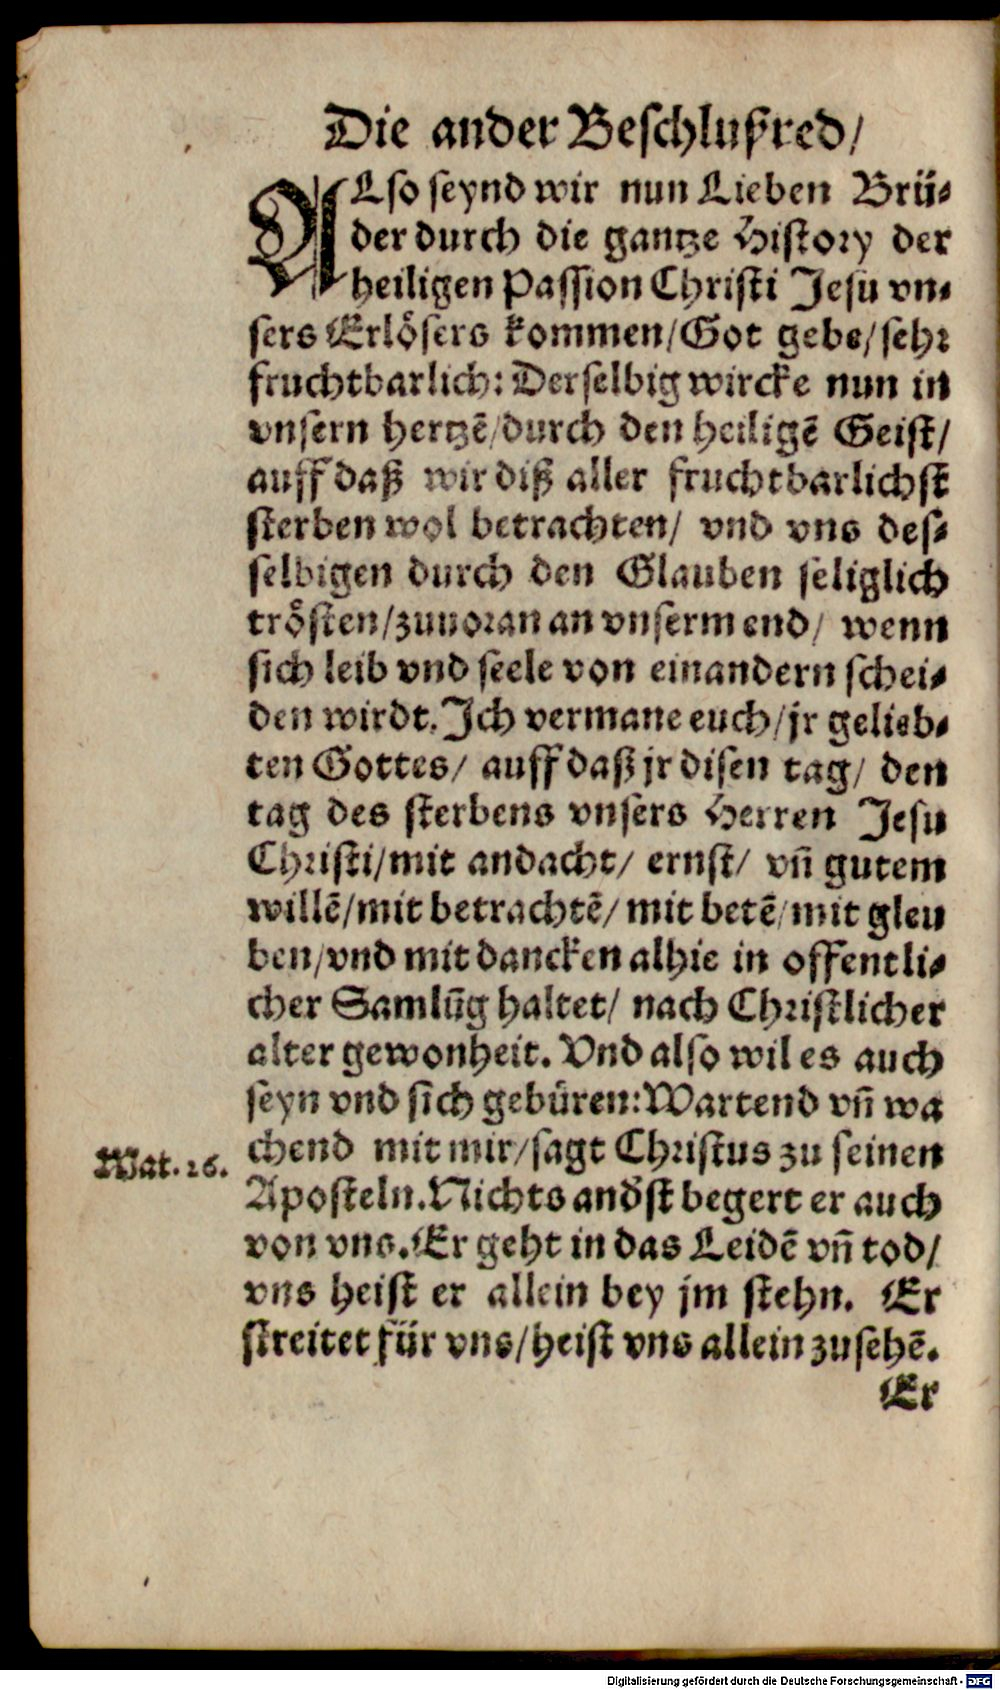 Die ander Beschlußred/
ALso seynd wir nun Lieben Brü-
der durch die gantze History der
heiligen Passion Christi Jesu vn-
sers Erlösers kommen/Got gebe/sehr
fruchtbarlich: Derselbig wircke nun in
vnsern hertzē/durch den heiligē Geist/
auff daß wir diß aller fruchtbarlichst
sterben wol betrachten/ vnd vns des-
selbigen durch den Glauben seliglich
trösten/zuuoran an vnserm end/ wenn
sich leib vnd seele von einandern schei-
den wirdt. Ich vermane euch/jr gelieb-
ten Gottes/ auff daß jr disen tag/ den
tag des sterbens vnsers Herren Jesu
Christi/mit andacht/ ernst/ vñ gutem
willē/mit betrachtē/ mit betē/mit gleu
ben/vnd mit dancken alhie in offentli-
cher Samlūg haltet/ nach Christlicher
alter gewonheit. Vnd also wil es auch
seyn vnd sich gebüren: Wartend vñ wa
Mat. 26. chend mit mir/sagt Christus zu seinen
Aposteln. Nichts anđst begert er auch
von vns. Er geht in das Leidē vñ tod/
vns heist er allein bey jm stehn. Er
streitet für vns/heist vns allein zusehē.
Er
Digitalisierung gefördert durch die Deutsche Forschungsgemeinschaft - DFG